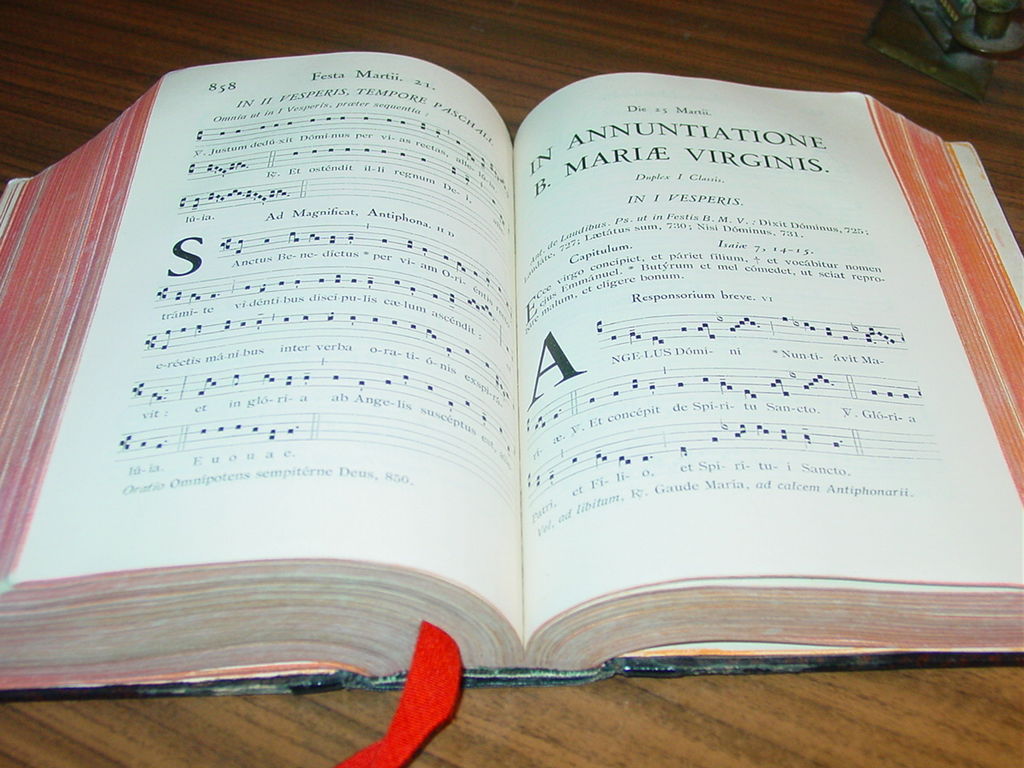 858
Festa Martii. 21.
IN II VESPERIS, TEMPORE PASCHALI.
Omnia ut in I Vesperis, præter sequentia :
℣. Justum dedúxit Dómi-nus per vi-as rectas, alle-lú-ia.
℟. Et osténdit il-li regnum De-i,
lú-ia.
Ad Magnificat, Antiphona. II D
SAnctus Be-ne-dictus * per vi-am O-ri-éntis
trámi-te vi-dénti-bus discí-pu-lis cælum ascéndit :
e-réctis má-ni-bus inter verba o-ra-ti-ó-nis exspi-rá-
vit : et in gló-ri-a ab Ange-lis suscéptus est,
lú-ia. E u o u a e.
Oratio Omnípotens sempitérne Deus, 850.
Die 25 Martii.
IN ANNUNTIATIONE
B. MARIÆ VIRGINIS.
Duplex I Classis.
IN I VESPERIS.
Ant. de Laudibus. Ps. ut in Festis B. M. V. : Dixit Dóminus, 725;
Laudáte, 727; Lætátus sum, 730; Nisi Dóminus, 731.
Capitulum. Isaiæ 7, 14-15.
Ecce virgo concípiet, et páriet fílium, † et vocábitur nomen
ejus Emmánuel. * Butýrum et mel cómedet, ut sciat repro-
báre malum, et elígere bonum.
Responsorium breve. VI
ANGELUS Dómi- ni * Nun-ti- ávit Ma-
rí- æ. ℣. Et concépit de Spí-ri- tu San-cto. ℣. Gló-ri-a
Patri, et Fí- li- o, et Spi- rí- tu- i Sancto.
Vel, ad libitum, ℟. Gaude María, ad calcem Antiphonarii.